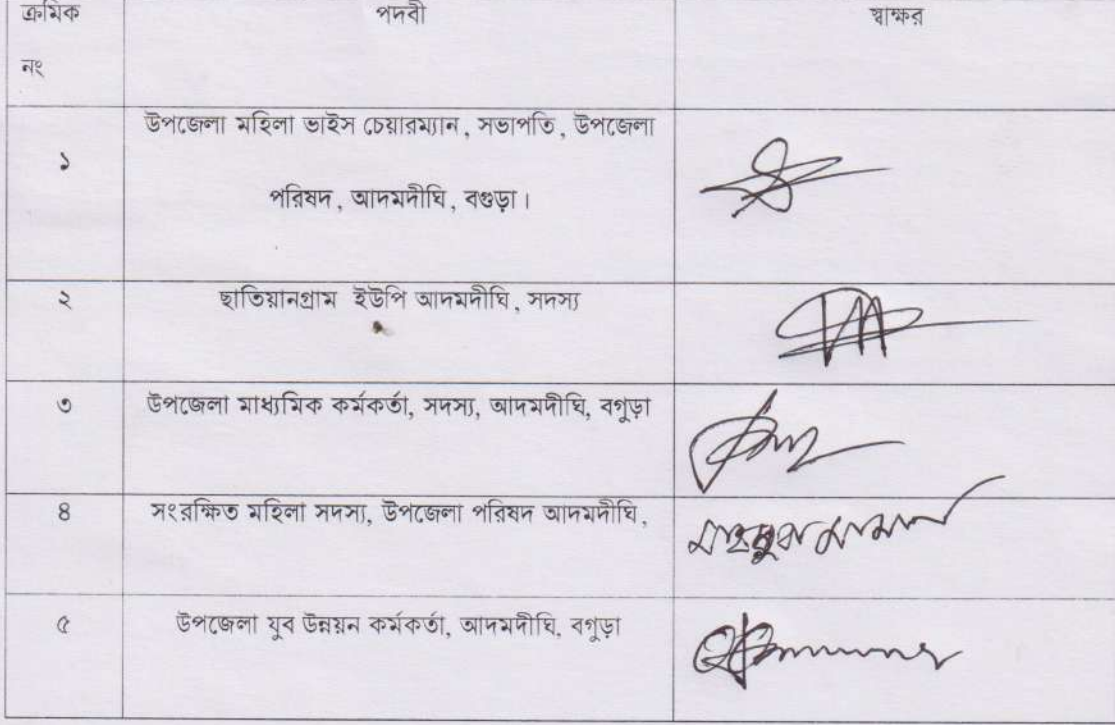 ক্রমিক
নং
পদবী
স্বাক্ষর
১
উপজেলা মহিলা ভাইস চেয়ারম্যান, সভাপতি, উপজেলা
পরিষদ, আদমদীঘি, বগুড়া।
২
ছাতিয়ানগ্রাম ইউপি আদমদীঘি, সদস্য
৩
উপজেলা মাধ্যমিক কর্মকর্তা, সদস্য, আদমদীঘি, বগুড়া
৪
সংরক্ষিত মহিলা সদস্য, উপজেলা পরিষদ আদমদীঘি,
৫
উপজেলা যুব উন্নয়ন কর্মকর্তা, আদমদীঘি, বগুড়া